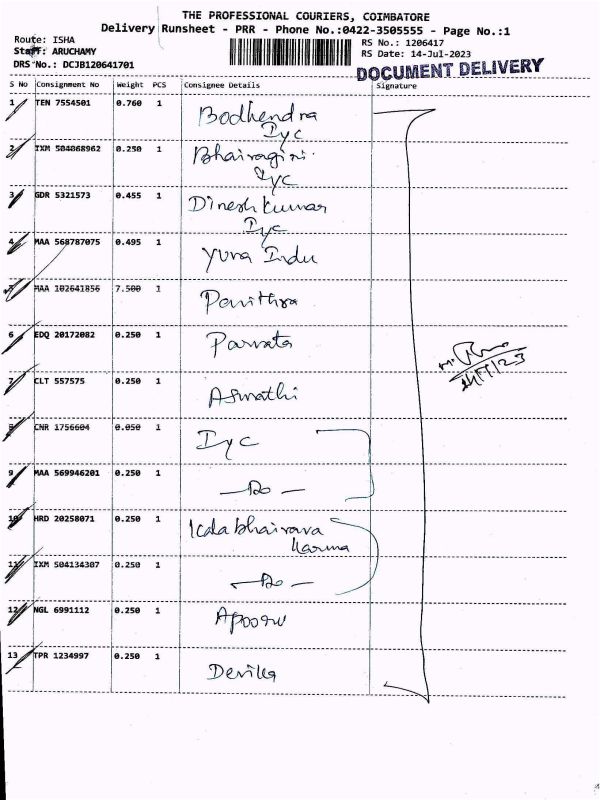 THE PROFESSIONAL COURIERS, COIMBATORE
Delivery Runsheet - PRR - Phone No.:0422-3505555 - Page No.:1
Route: ISHA
Staff: ARUCHAMY
DRS No.: DCJB120641701
RS No.: 1206417
RS Date: 14-Jul-2023
DOCUMENT DELIVERY
S No Consignment No Weight PCS Consignee Details Signature
1 TEN 7554501 0.760 1 Bodhendra
Iyc
2 IXM 504068962 0.250 1 Bhairagini
Iyc
3 GDR 5321573 0.455 1 Dinesh kumar
Iyc
4 MAA 568787075 0.495 1 Yuva Indu
5 MAA 102641856 7.500 1 Pavithra
6 EDQ 20172082 0.250 1 Parvata
7 CLT 557575 0.250 1 Aswathi
8 CNR 1756604 0.050 1 Iyc
9 MAA 569946201 0.250 1 - Do -
10 HRD 20258071 0.250 1 Kalabhairava
Karma
11 IXM 504134307 0.250 1 - Do -
12 NGL 6991112 0.250 1
13 TPR 1234997 0.250 1 Devika